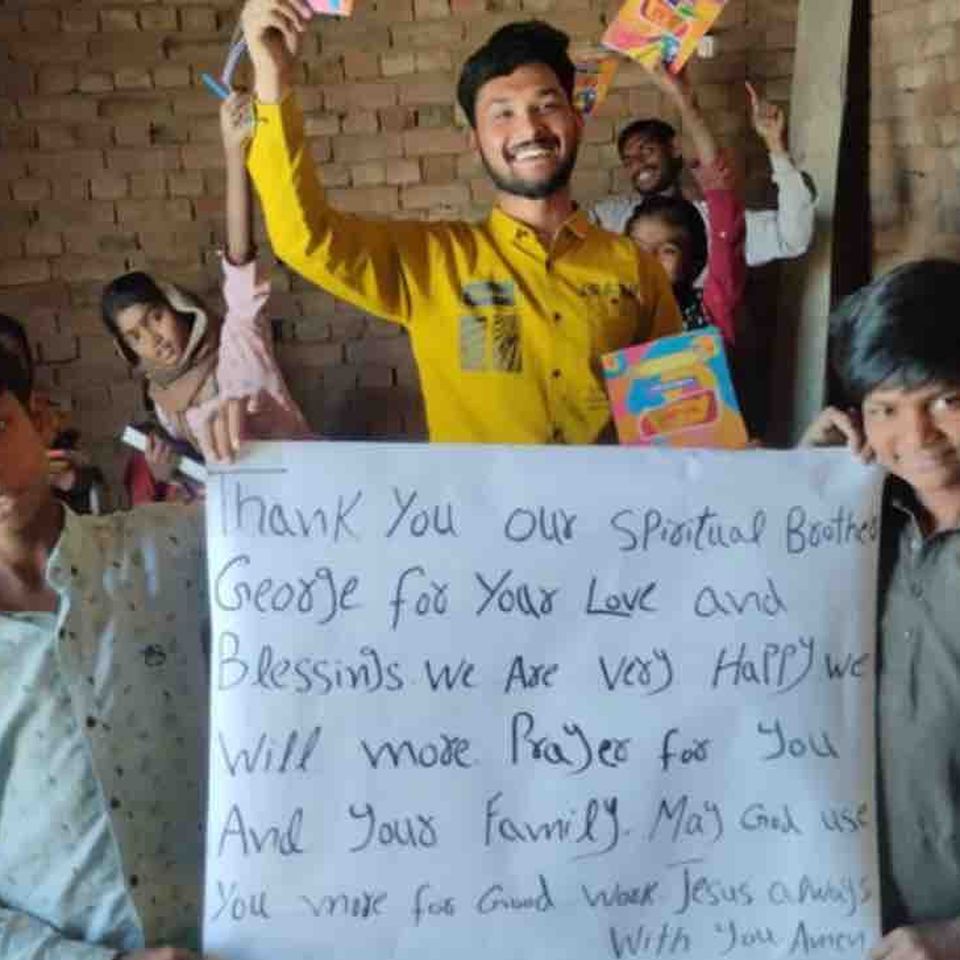 Thank You our Spiritual Brother
George for Your Love and
Blessings. We Are Very Happy we
Will more Prayer for You
And Your Family. May God use
You more for Good Work Jesus always
With You Amen